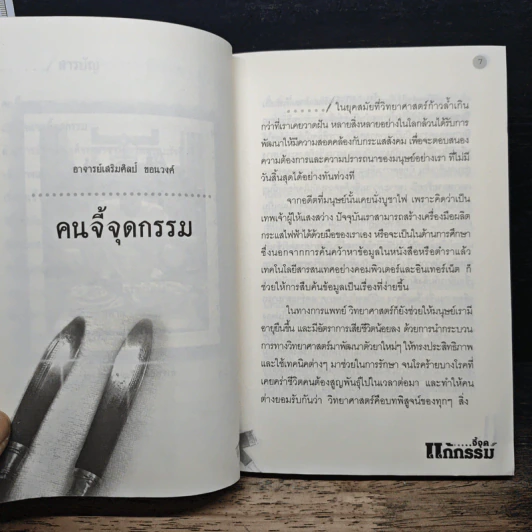 สารบัญ
อาจารย์เสริมศิลป์ ขอนวงค์
คนจี้จุดกรรม
7
....../ ในยุคสมัยที่วิทยาศาสตร์ก้าวล้ำเกิน
กว่าที่เราเคยวาดฝัน หลายสิ่งหลายอย่างในโลกล้วนได้รับการ
พัฒนาให้มีความสอดคล้องกับกระแสสังคม เพื่อจะตอบสนอง
ความต้องการและความปรารถนาของมนุษย์อย่างเรา ที่ไม่มี
วันสิ้นสุดได้อย่างทันท่วงที
จากอดีตที่มนุษย์นั้นเคยนั่งบูชาไฟ เพราะคิดว่าเป็น
เทพเจ้าผู้ให้แสงสว่าง ปัจจุบันเราสามารถสร้างเครื่องมือผลิต
กระแสไฟฟ้าได้ด้วยมือของเราเอง หรือจะเป็นในด้านการศึกษา
ซึ่งนอกจากการค้นคว้าหาข้อมูลในหนังสือหรือตำราแล้ว
เทคโนโลยีสารสนเทศอย่างคอมพิวเตอร์และอินเทอร์เน็ต ก็
ช่วยให้การสืบค้นข้อมูลเป็นเรื่องที่ง่ายขึ้น
ในทางการแพทย์ วิทยาศาสตร์ก็ยังช่วยให้มนุษย์เรามี
อายุยืนขึ้น และมีอัตราการเสียชีวิตน้อยลง ด้วยการนำกระบวน
การทางวิทยาศาสตร์มาพัฒนาตัวยาใหม่ๆ ให้ทรงประสิทธิภาพ
และใช้เทคนิคต่างๆ มาช่วยในการรักษา จนโรคร้ายบางโรคที่
เคยคร่าชีวิตคนต้องสูญพันธุ์ไปในเวลาต่อมา และทำให้คน
ต่างยอมรับกันว่า วิทยาศาสตร์คือบทพิสูจน์ของทุกๆ สิ่ง
.....จี้จุด
แก้กรรม